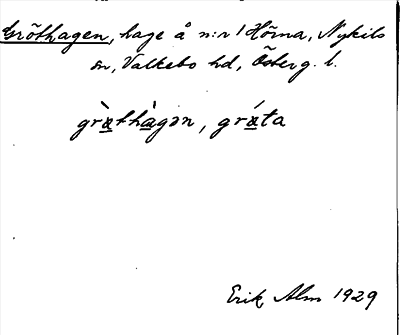 Gröthagen, hage å n:r 1 Hörna, Nykils
sn, Valkebo hd, Österg. l.
græ̀thàgən, grǽta
Erik Alm 1929